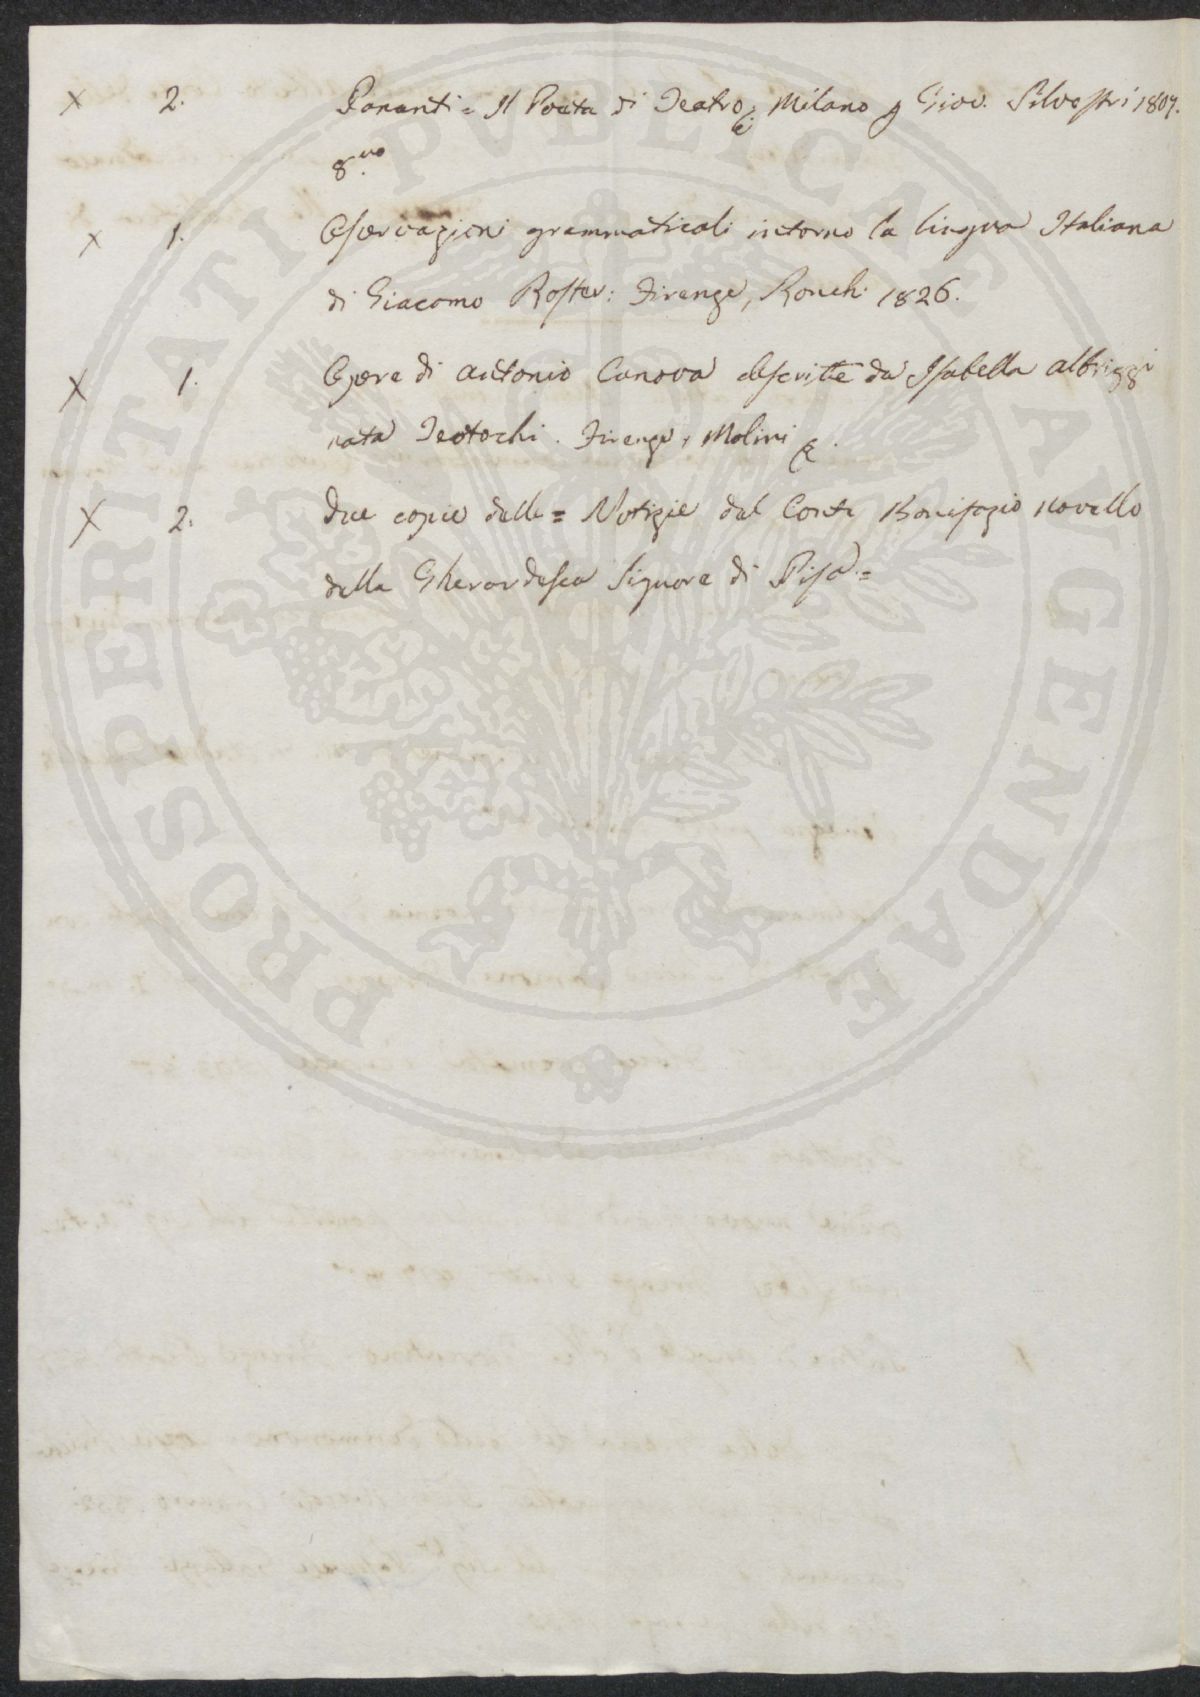 X 2. Pananti = Il Poeta di Teatro; Milano p Giov. Silvestri 1809.
8.vo
X 1. Osservazioni grammaticali intorno la lingua Italiana
di Giacomo Roster: Firenze, Ronchi 1826.
X 1. Opere di Antonio Canova descritte da Isabella Albrizzi
nata Teotochi. Firenze, Molini
X 2. Due copie delle = Notizie del Conte Bonifazio novello
della Gherardesca Signore di Pisa =
PROSPERITATI PVBLICAE AVGENDAE